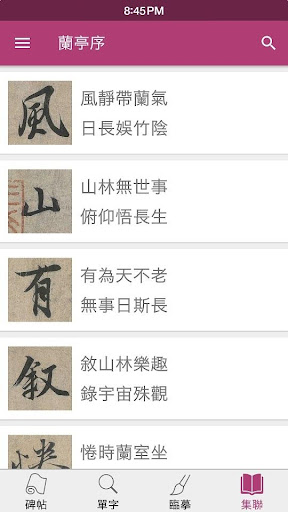 8:45PM
蘭亭序
風
風靜帶蘭氣
日長娛竹陰
山
山林無世事
俯仰悟長生
有
有為天不老
無事日斯長
敘
敘山林樂趣
錄宇宙殊觀
惓
惓時蘭室坐
碑帖
單字
臨摹
集聯